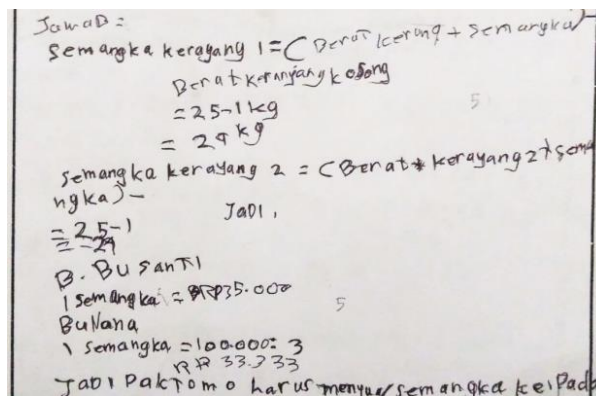 Jawab:
Semangka kerayang 1 = (Berat kerang + Semangka) -
Berat keranjang kosong
= 25-1 kg
= 24 kg
5
Semangka kerayang 2 = (Berat kerayang 2 + sema
ngka) -
Jadi,
= 25-1
= 24
B. Bu Santi
1 semangka = RP35.000
5
Bu Nana
1 semangka = 100.000: 3
RP 33.333
Jadi Pak Tomo harus semangka ke